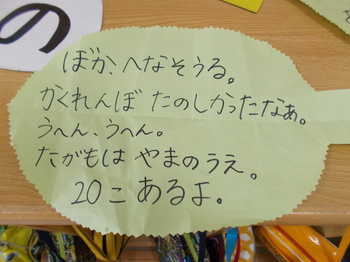 の
ぼか、へなそうる。
かくれんぼ たのしかったなぁ。
うへん、うへん。
たがもは やまのうえ。
20こ あるよ。